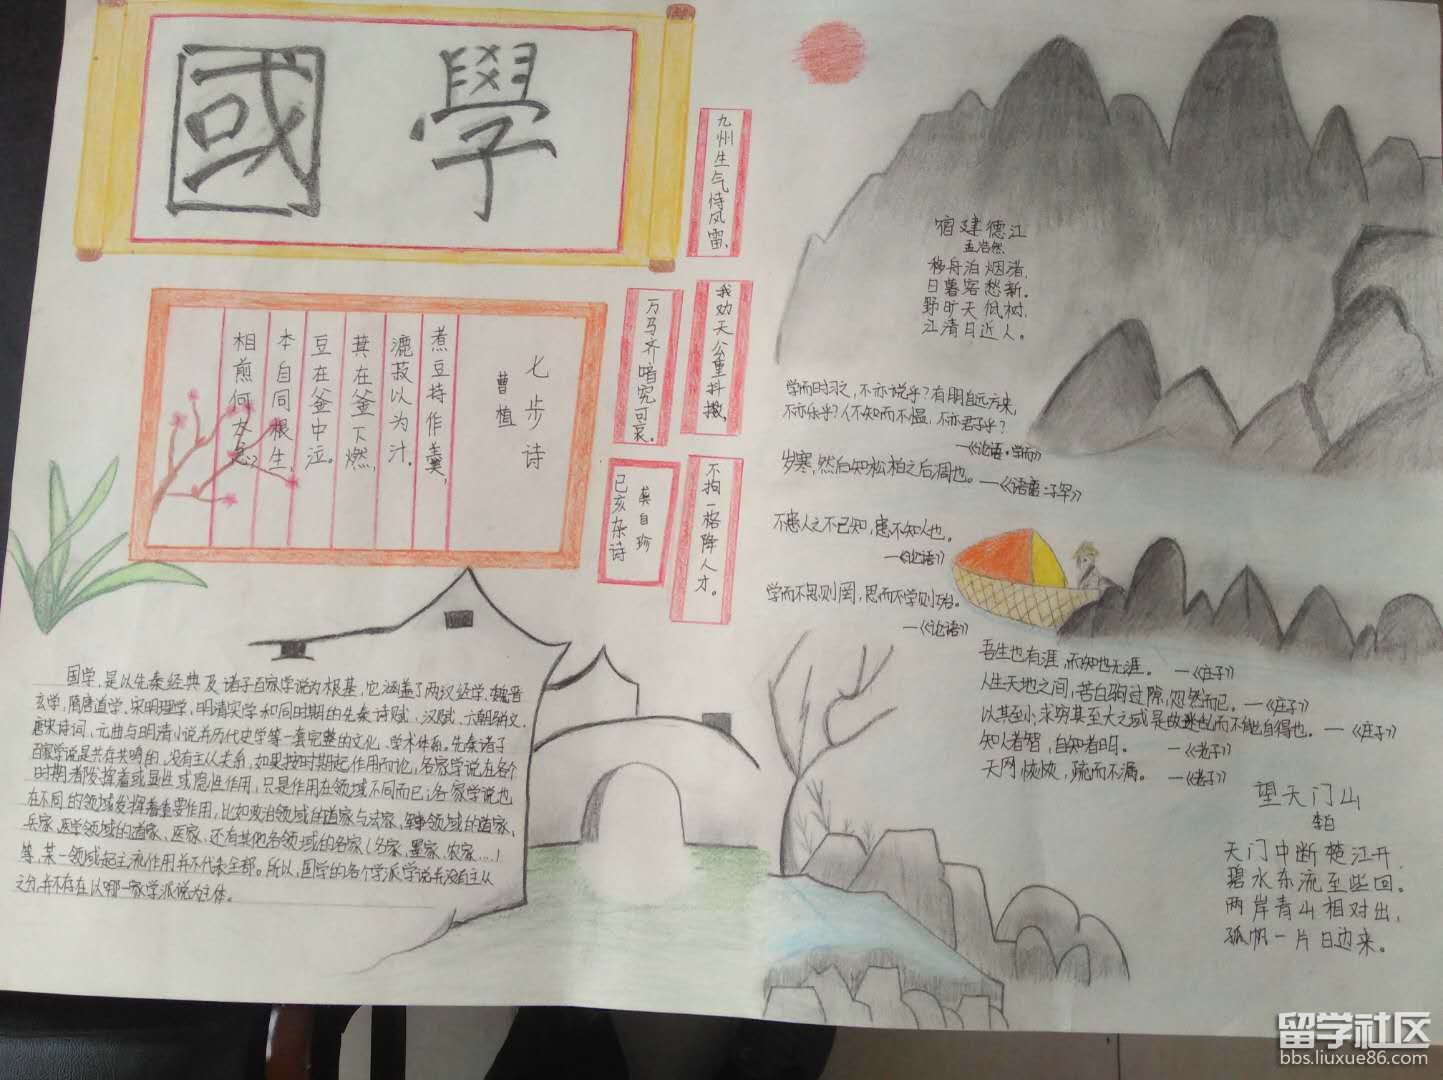 國學
九州生气恃风雷、
万马齐喑究可哀。
我劝天公重抖擞、
不拘一格降人才。
己亥杂诗
龚自珍
七步诗
曹植
煮豆持作羹，
漉菽以为汁。
萁在釜下燃，
豆在釜中泣。
本自同根生，
相煎何太急？
宿建德江
孟浩然
移舟泊烟渚，
日暮客愁新。
野旷天低树，
江清月近人。
学而时习之，不亦说乎？有朋自远方来，
不亦乐乎？人不知而不愠，不亦君子乎？
—《论语·学而》
岁寒，然后知松柏之后凋也。—《论语·子罕》
不患人之不己知，患不知人也。
—《论语》
学而不思则罔，思而不学则殆。
—《论语》
吾生也有涯，而知也无涯。 —《庄子》
人生天地之间，若白驹过隙，忽然而已。—《庄子》
以其至小，求穷其至大之域是故迷也而不能自得也。—《庄子》
知人者智，自知者明。 —《老子》
天网恢恢，疏而不漏。 —《老子》
望天门山
李白
天门中断楚江开，
碧水东流至此回。
两岸青山相对出，
孤帆一片日边来。
国学，是以先秦经典及诸子百家学说为根基，它涵盖了两汉经学、魏晋
玄学，隋唐道学、宋明理学，明清实学和同时期的先秦诗赋，汉赋、六朝骈文、
唐宋诗词、元曲与明清小说并历代史学等一套完整的文化、学术体系。先秦诸子
百家学说是共存共鸣的，没有主从关系，如果按时期起作用而论，各家学说在各个
时期都发挥着或显性或隐性作用，只是作用在领域不同而已；各家学说也
在不同的领域发挥着重要作用，比如政治领域的道家与法家，军事领域的道家、
兵家，医学领域的道家、医家，还有其他各领域的名家（名家、墨家、农家……）
等，某一领域起主流作用并不代表全部。所以，国学的各个学派学说并没有主从
之分，并不存在以哪一家学派说为主体。
留学社区
bbs.liuxue86.com